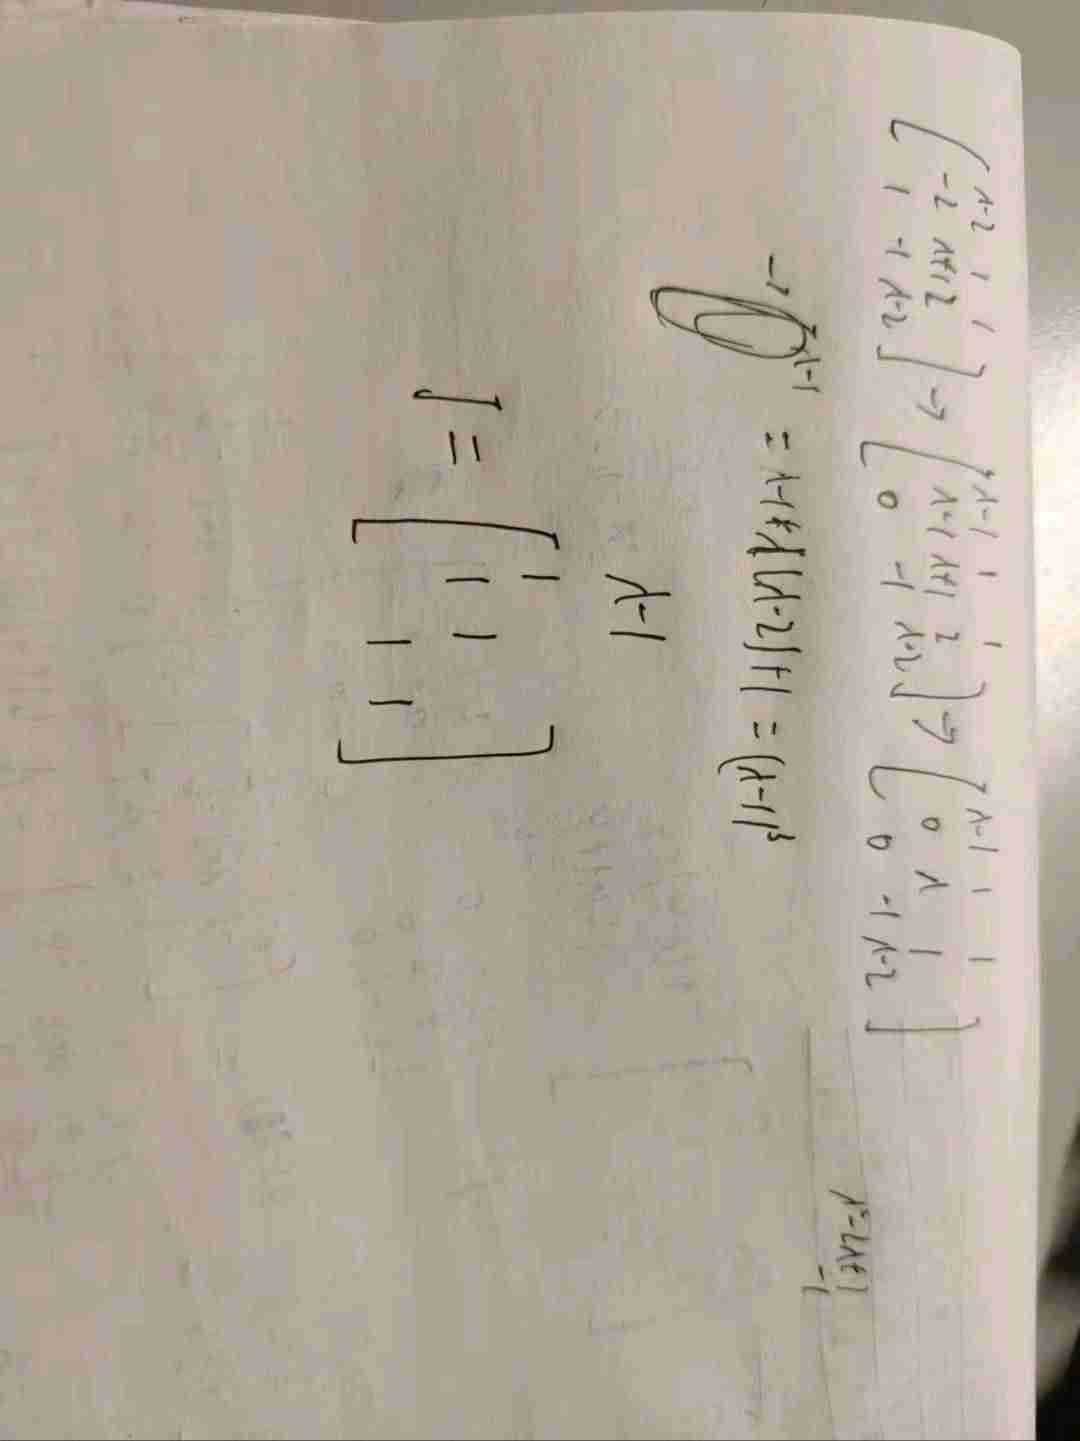 [λ-2 1 1 -2 λ+1 2 1 -1 λ-2] → [λ-1 1 1 λ-1 λ+1 2 0 -1 λ-2] → [λ-1 1 1 0 λ 1 0 -1 λ-2]
λ²-2λ+1
-1
λ-1
= λ-1 [λ(λ-2)+1 = (λ-1)³
λ-1
J = [1 1 1 1 1]